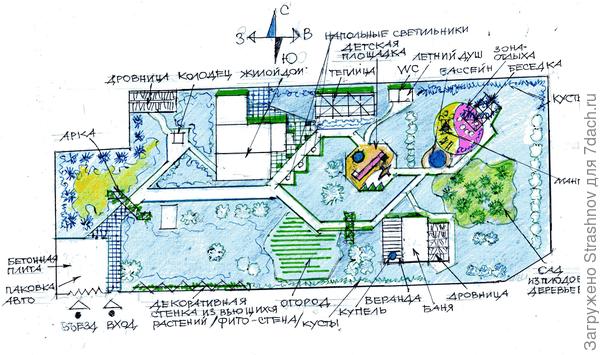 С
З
В
Ю
НАПОЛЬНЫЕ СВЕТИЛЬНИКИ
ДЕТСКАЯ
ПЛОЩАДКА
ЛЕТНИЙ ДУШ
ЗОНА
ОТДЫХА
ДРОВНИЦА
КОЛОДЕЦ
ЖИЛОЙ ДОМ
ТЕПЛИЦА
WC
БАССЕЙН
БЕСЕДКА
КУСТЫ
АРКА
МАНГ
БЕТОННАЯ
ПЛИТА
ПАКОВКА
АВТО
ВЪЕЗД
ВХОД
ДЕКОРАТИВНАЯ
СТЕНКА ИЗ ВЬЮЩИХСЯ
РАСТЕНИЙ /ФИТО-СТЕНА/
ОГОРОД
КУСТЫ
КУПЕЛЬ
ВЕРАНДА
БАНЯ
ДРОВНИЦА
САД
ИЗ ПЛОДОВ
ДЕРЕВЬЕВ
Загружено Strashnov для 7dach.ru